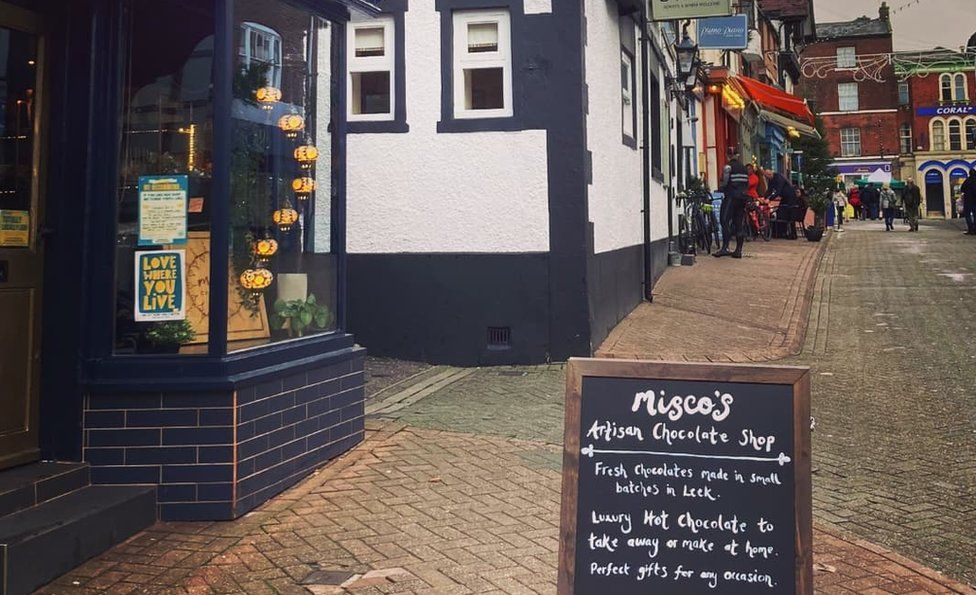 piano piano
CORAL
LOVE
WHERE
YOU
LIVE
Misco's
Artisan Chocolate Shop
Fresh Chocolates made in small
batches in Leek.
Luxury Hot Chocolate to
take away or make at home.
Perfect gifts for any occasion.